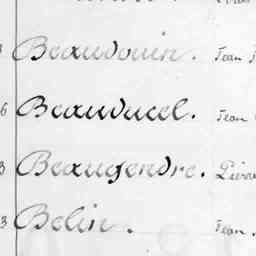 Beaudouin. Jean
6 Beauducel. Jean
3 Beaugendre. Pierre
3 Belin. Jean